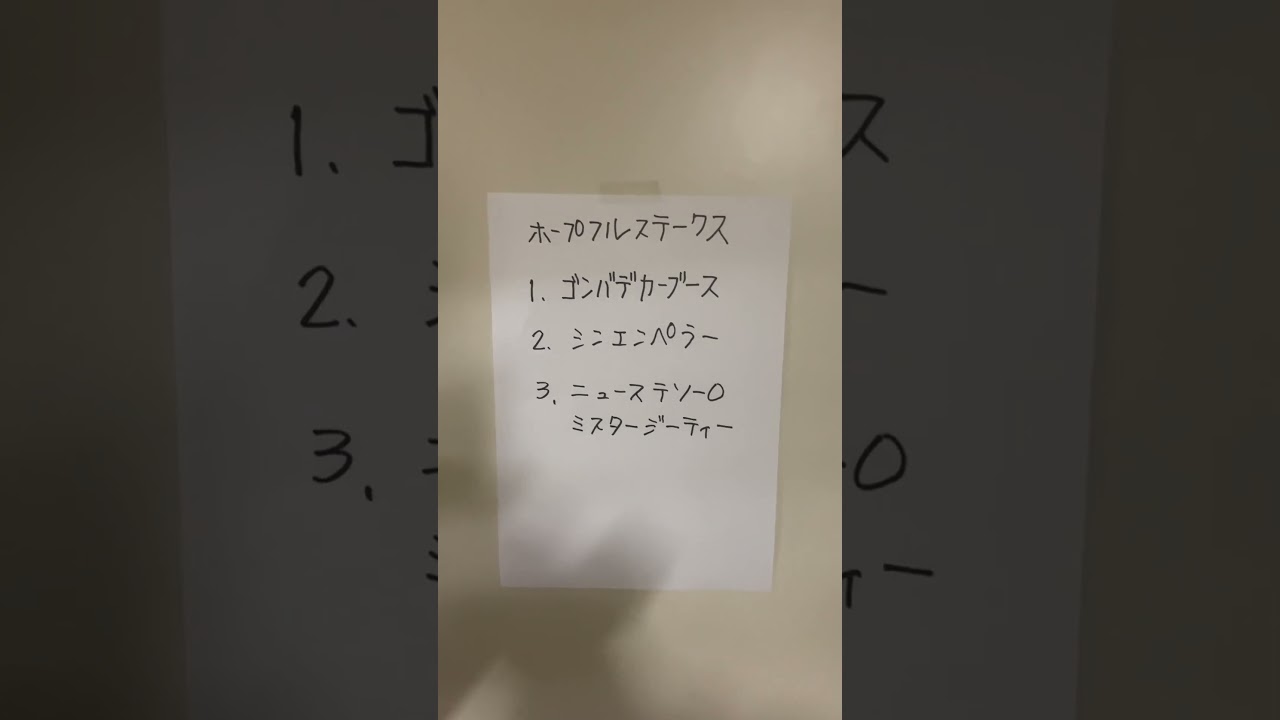 ホープフルステークス
1. ゴンバデカーブース
2. シンエンペラー
3. ニューステソーO
ミスタージーティー